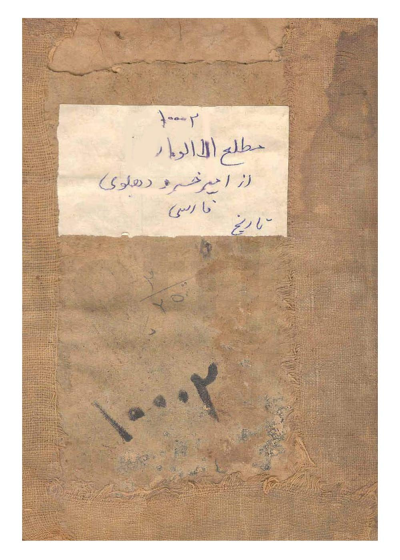 ۱۰۰۰۲
مطلع الانوار
از امیر خسرو دهلوی
فارسی
تاریخ
۱۰۰۰۲